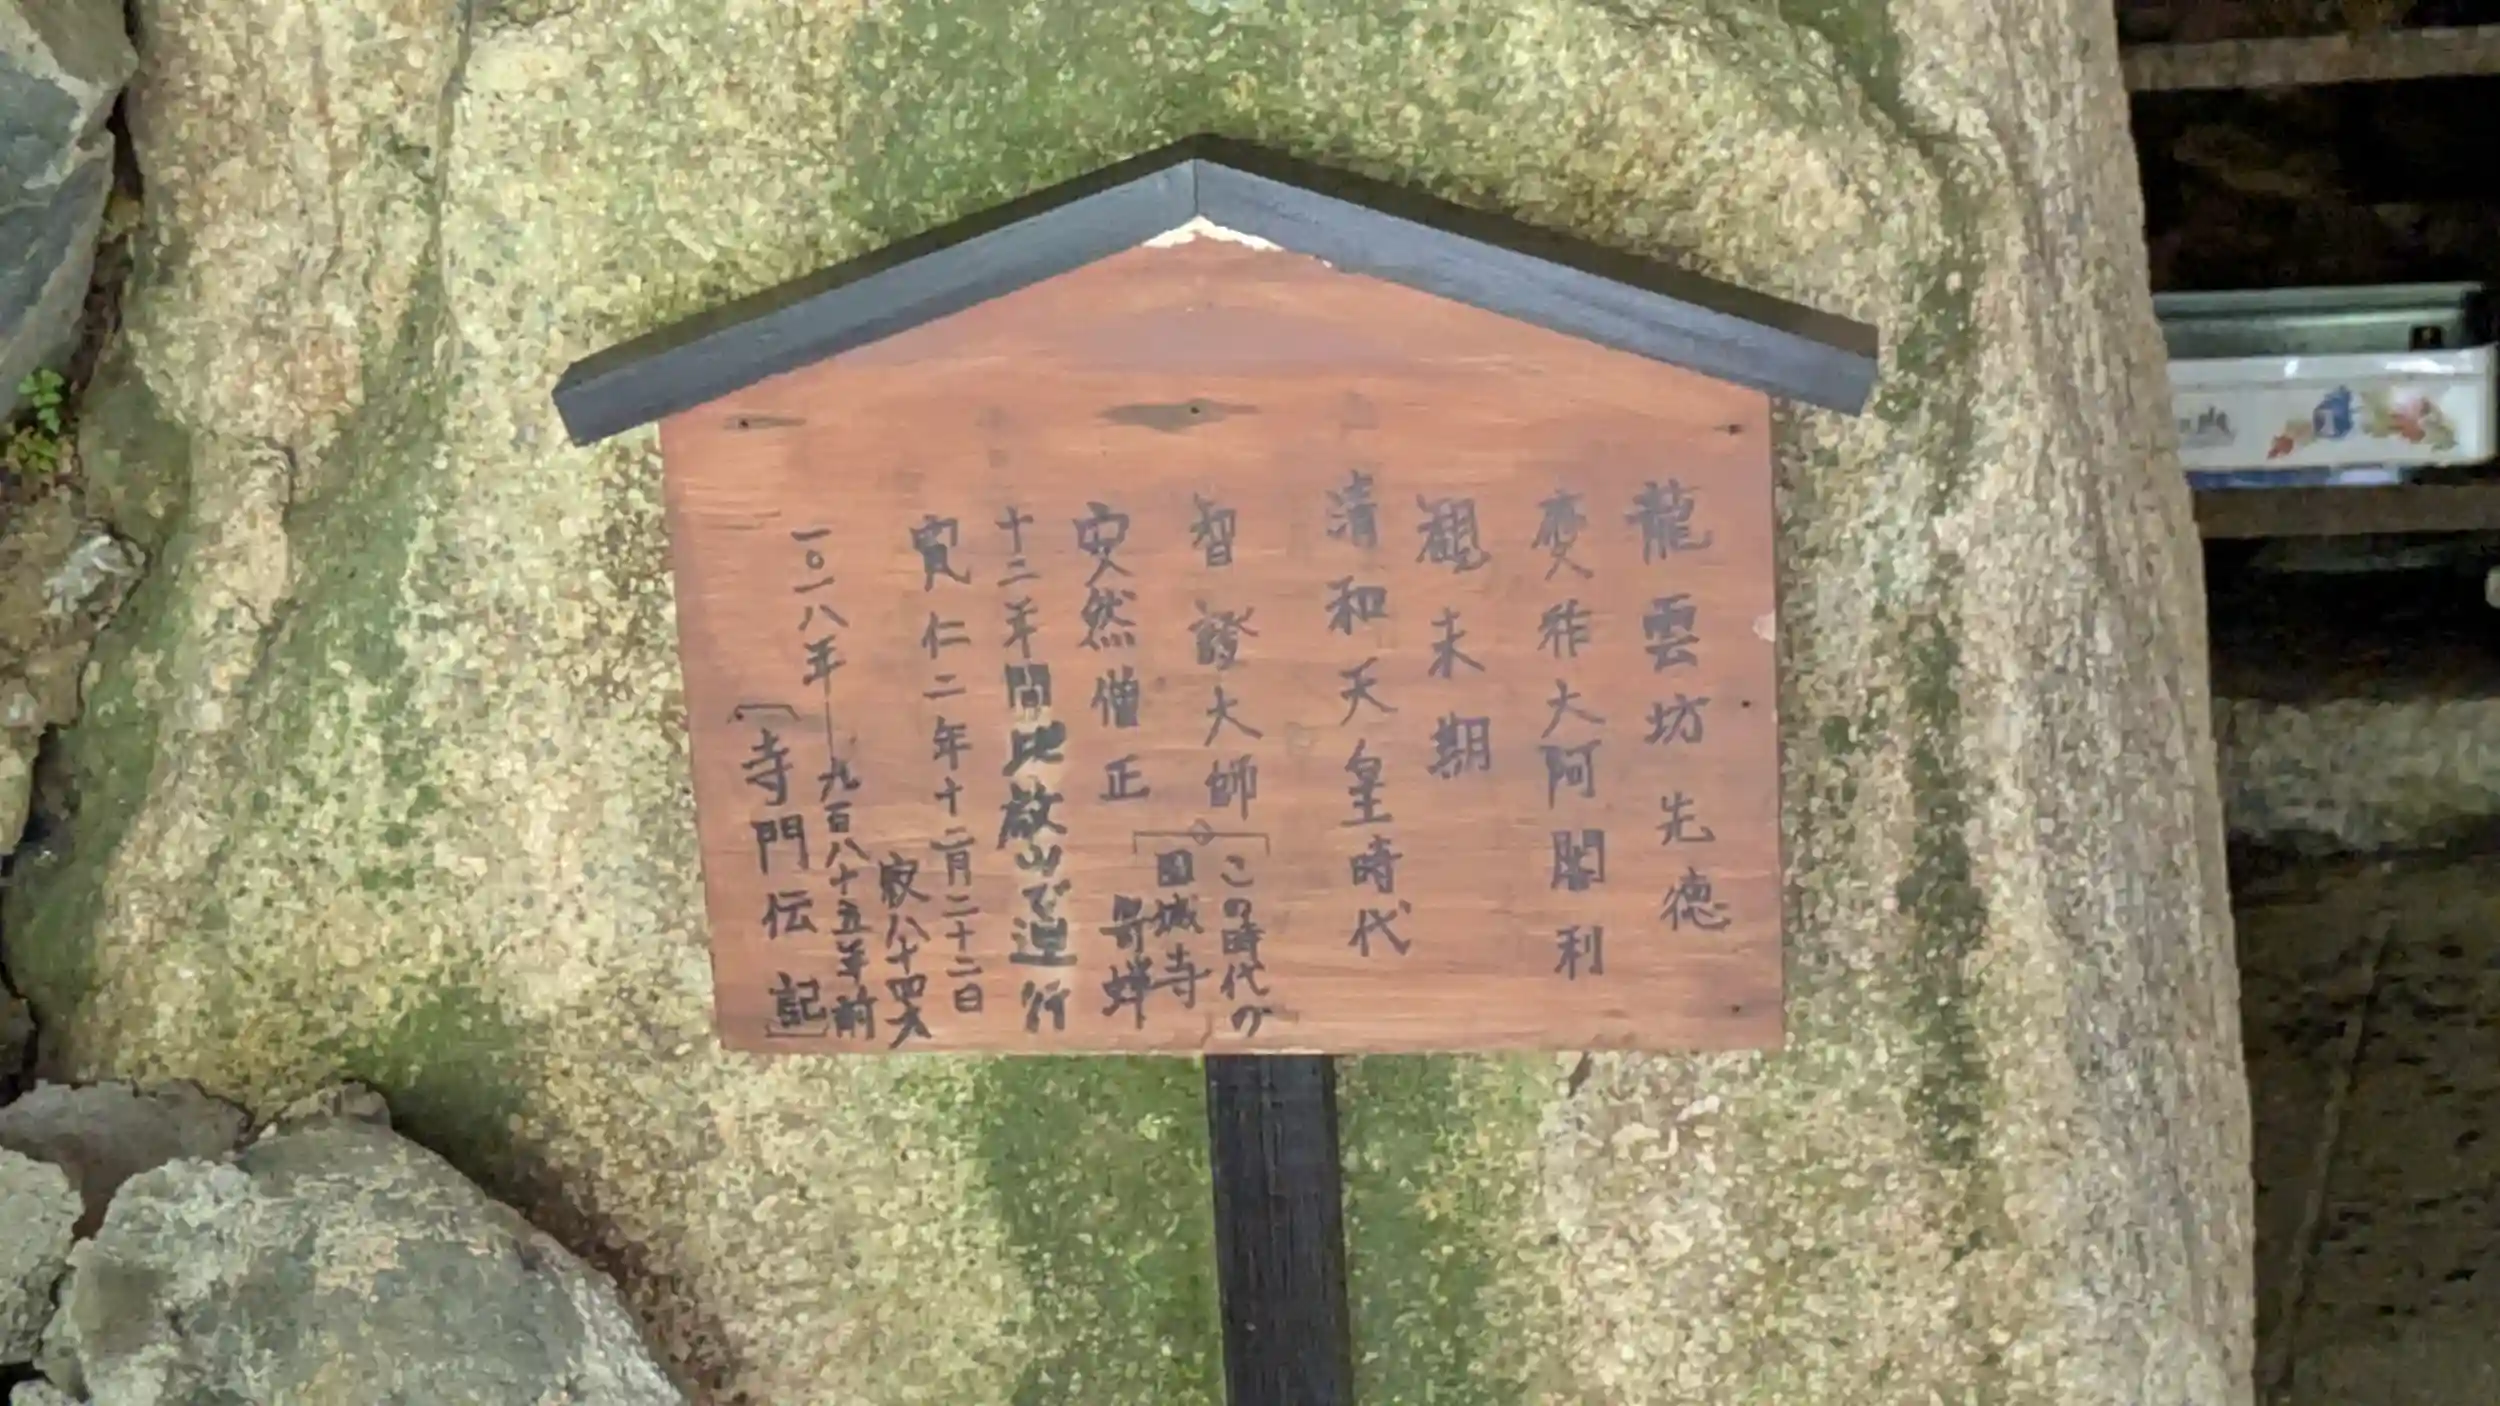 龍雲坊先德
変作大阿闍利
観未期
清和天皇時代
智證大師
この時代の
園城寺
安然僧正
十二年間比叡山で運行
寛仁二年十二月二十二日
寂八十四才
一〇一八年―九百八十五年前
〔寺門伝記〕